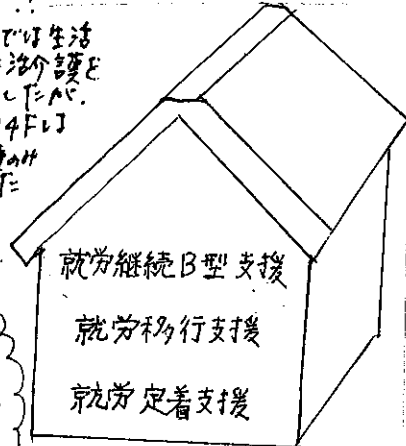 では生活
治介護を
したが、
4年は
のみ
した
就労継続B型支援
就労移行支援
就労定着支援